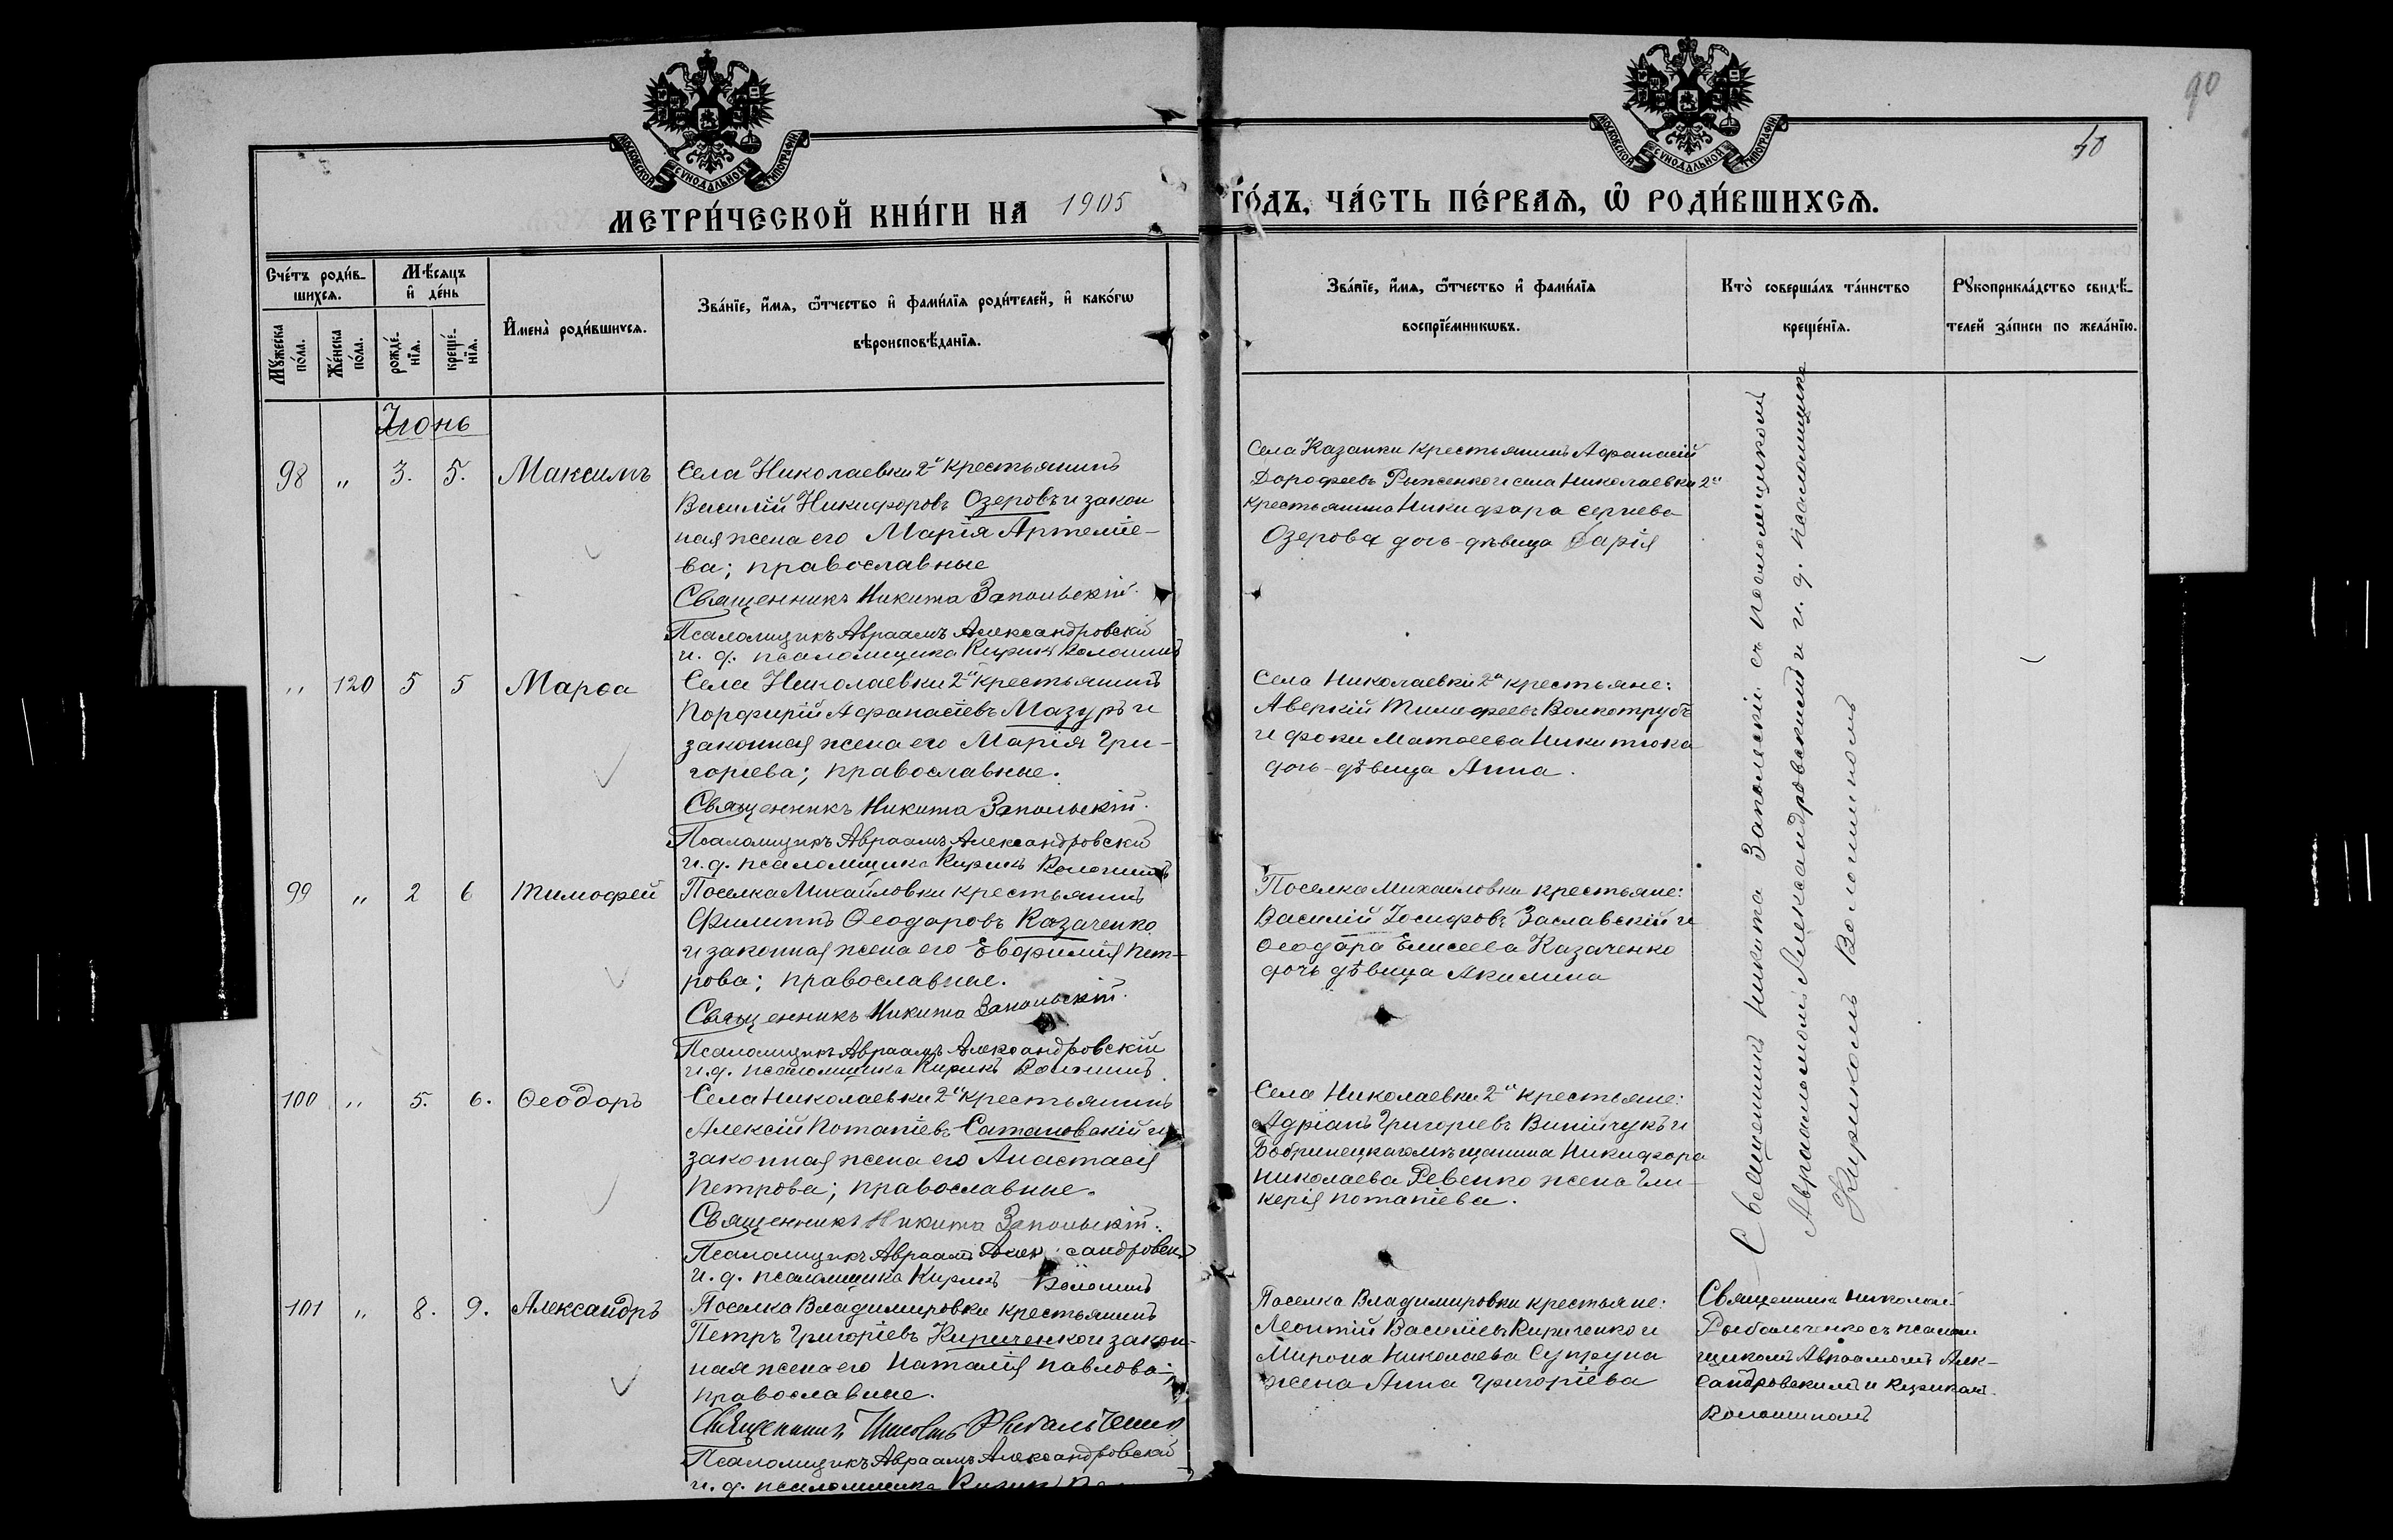 90
40
МОСКОВСКОЙ СѴНОДАЛЬНОЙ ТИПОГРАФІИ
МОСКОВСКОЙ СѴНОДАЛЬНОЙ ТИПОГРАФІИ
МЕТРИ́ЧЕСКОЙ КНИ́ГИ НА 1905 ГО́ДЪ, ЧА́СТЬ ПЕ́РВАѦ, Ѽ РОДИ́ВШИХСѦ.
Сче́тъ роди́в-
шихсѧ.
Мꙋ́жеска по́ла.
Же́нска по́ла.
Мѣ́сѧцъ и҆ де́нь
рожде́-нїѧ.
креще́-нїѧ.
И҆мена̀ роди́вшихсѧ.
Зва́нїе, и҆́мѧ, ѻ҆́тчество и҆ фами́лїѧ роди́телей, и҆ како́гѡ
вѣроисповѣ́данїѧ.
Зва́нїе, и҆́мѧ, ѻ҆́тчество и҆ фами́лїѧ
воспрїе́мникѡвъ.
Кто̀ соверша́лъ та́инство
креще́нїѧ.
Рꙋкоприкла́дство свидѣ́-
телей за́писи по жела́нїю.
Іюнь
98 " 3. 5. Максимъ
Села Николаевки 2й крестьянинъ
Василій Никифоровъ Озеровъ и закон
ная жена его Марія Артеміе-
ва; православные
Священникъ Никита Запольскій.
Псаломщикъ Авраамъ Александровскій
и. д. псаломщика Кирикъ Волошинъ
Села Казанки крестьянинъ Афанасій
Дорофеевъ Рыженко и села Николаевки 2й
крестьянина Никифора Сергиева
Озерова дочь-дѣвица Дарія
" 120 5 5 Марѳа
Села Николаевки 2й крестьянинъ
Порфирій Афанасіевъ Мазуръ и
законная жена его Марія Гри-
горіева; православные.
Священникъ Никита Запольскій.
Псаломщикъ Авраамъ Александровскій
и. д. псаломщика Кирикъ Волошинъ
Села Николаевки 2й крестьяне:
Аверкій Тимофеевъ Волкотрубъ
и Фоки Матѳеева Никитюка
дочь-дѣвица Анна.
99 " 2 6 Тимофей
Поселка Михайловки крестьянинъ
Филиппъ Ѳеодоровъ Казаченко
и законная жена его Евфимія Пет-
рова; православные.
Священникъ Никита Запольскій.
Псаломщикъ Авраамъ Александровскій
и. д. псаломщика Кирикъ Волошинъ
Поселка Михайловки крестьяне:
Василій Іосифовъ Заславскій и
Ѳеодора Елисеева Казаченко
дочь дѣвица Акилина
100 " 5. 6. Ѳеодоръ
Села Николаевки 2й крестьянинъ
Алексій Потапіевъ Сатановскій и
законная жена его Анастасія
Петрова; православные.
Священникъ Никита Запольскій.
Псаломщикъ Авраамъ Александровскій
и. д. псаломщика Кирикъ Волошинъ
Села Николаевки 2й крестьяне:
Адріанъ Григоріевъ Винійчукъ и
Бобринецкаго мѣщанина Никифора
Николаева Ревенко жена Гли-
керія Потапіева.
Священникъ Никита Запольскій съ псаломщикомъ
Авраамомъ Александровскимъ и и. д. псаломщика
Кирикомъ Волошиномъ
101 " 8. 9. Александръ
Поселка Владимировки крестьянинъ
Петръ Григоріевъ Кириченко и закон-
ная жена его Наталія Павлова;
православные.
Священникъ Николай Рыбальченко
Псаломщикъ Авраамъ Александровскій
и. д. псаломщика Кирикъ
Поселка Владимировки крестьяне:
Леонтій Василіевъ Кириченко и
Мирона Николаева Супруна
жена Анна Григоріева
Священникъ Николай
Рыбальченко съ псалом
щикомъ Авраамомъ Алек-
сандровскимъ и Кирикомъ
Волошиномъ